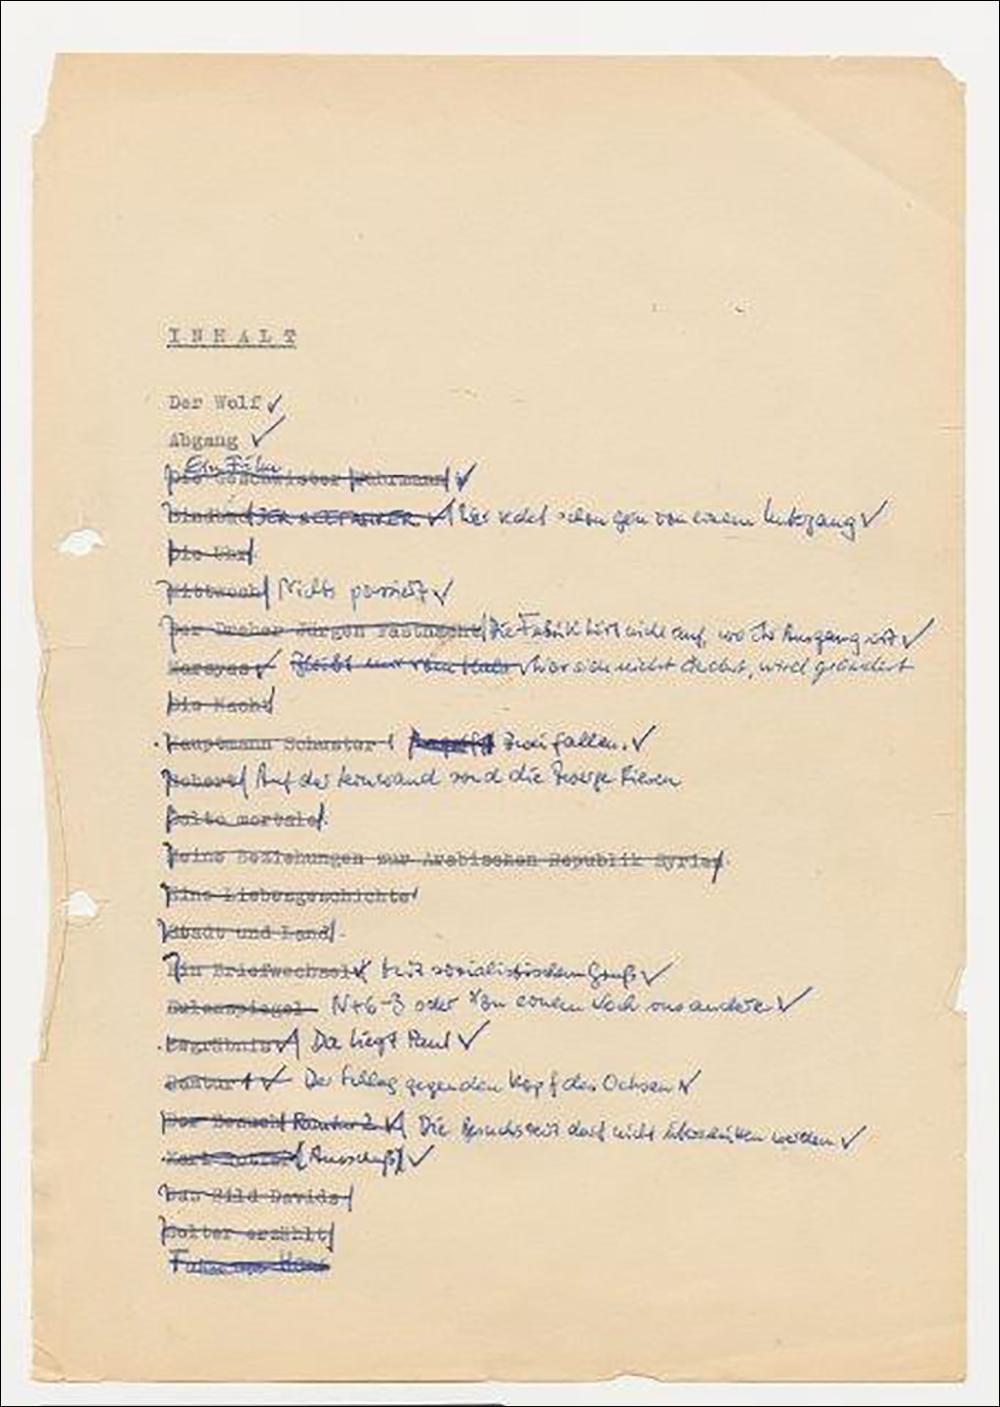 INHALT
Der Wolf ✓
Abgang ✓
Ein Film
Die Geschwister ✓
Sindbad DER SEEFAHRER ✓ Hier redet schon gern von einem ✓
Die Uhr
Mittwoch Nichts passiert ✓
Der Dreher Jürgen Fastnacht Die Fabrik hört nicht auf, wo ihr Ausgang ist ✓
Marsyas ✓ Bleibt nur ✓ Wer sich nicht duckt, wird geändert
Die Nacht
Hauptmann Schuster Zwei fallen. ✓
Auf der Leinwand sind die Zwerge Riesen
Salto mortale
Meine Beziehungen zur Arabischen Republik Syrien
Eine Liebesgeschichte
Stadt und Land
Ein Briefwechsel ✓ Mit sozialistischem Gruß ✓
Eulenspiegel N+6-3 oder Von einem Loch ins andere ✓
Begräbnis ✓ Da liegt Paul ✓
1 ✓ Der Schlag gegen den Kopf des Ochsen ✓
Der Besuch 2 ✓ Die Besuchszeit darf nicht überschritten werden ✓
Karl ✓
Das Bild Davids
erzählt